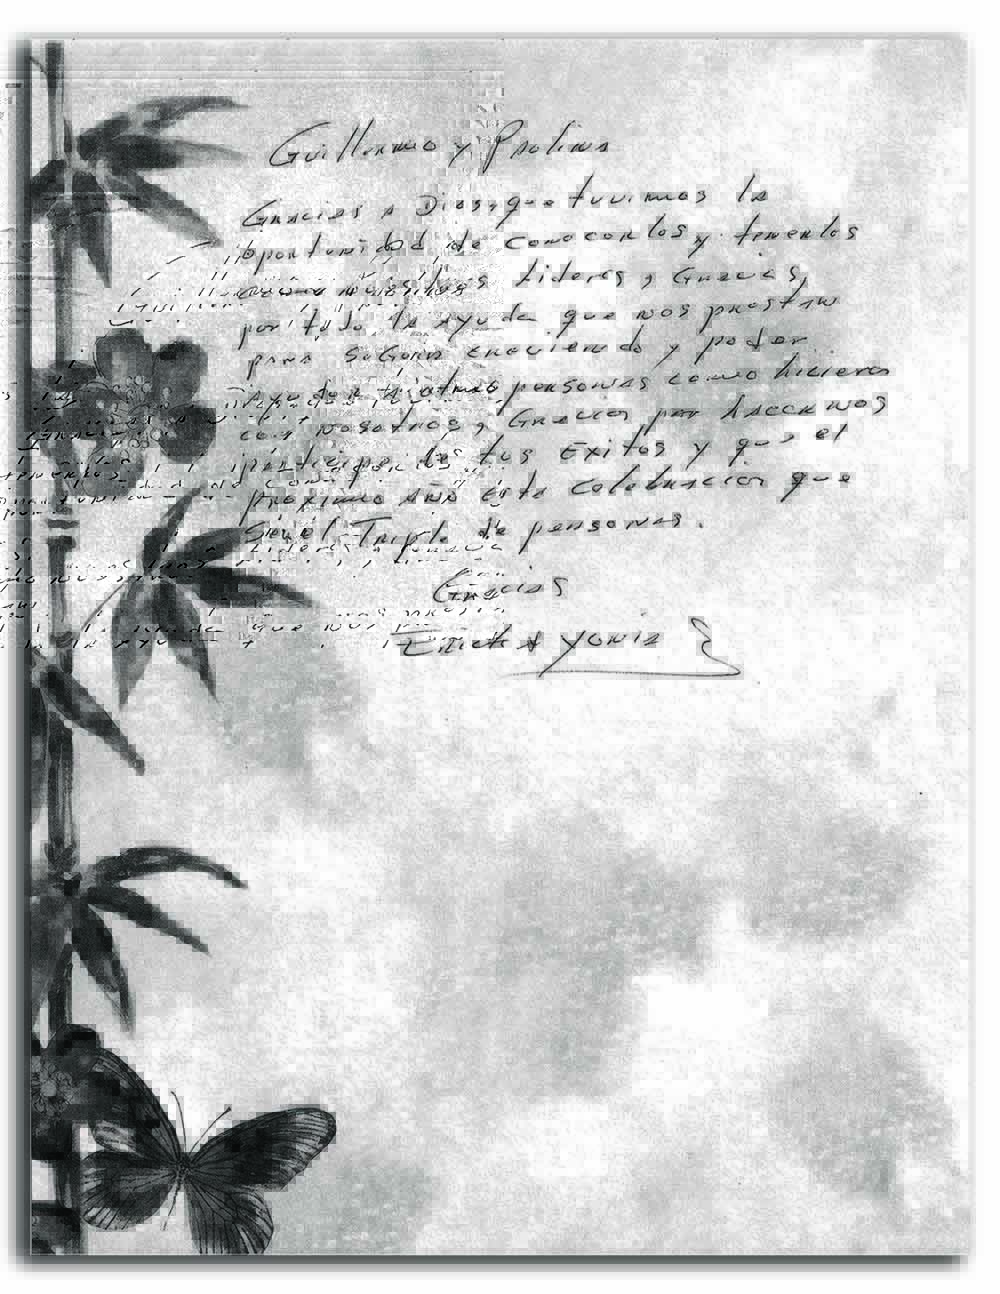 Guillermo y Paolina
Gracias a Dios, que tuvimos la
oportunidad de conocerlos y tenerlos
como nuestros Lideres, Gracias,
por todo la ayuda que nos prestan
para seguir creciendo y poder
ayudar a otras personas como hicieron
con nosotros, Gracias por hacernos
participe de tus Exitos y que el
proximo año esta celebracion que
sea el Triple de personas.
Gracias
Erick A Yonia